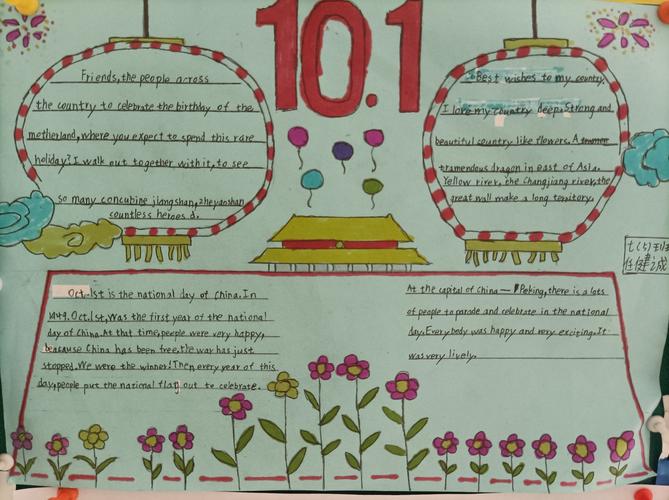 10.1
Friends, the people across
the country to celebrate the birthday of the
motherland, where you expect to spend this rare
holiday? I walk out together with it, to see
so many concubine jiangshan, zheyaoshan
countless heroes d.
Best wishes to my country.
I love my country deep. Strong and
beautiful country like flowers. A
tramendous dragon in east of Asia.
Yellow river, the Changjiang river, the
great wall make a long territory.
七(5)班
任健诚
Oct.1st is the national day of China. In
1949. Oct.1st, Was the first year of the national
day of China. At that time, people were very happy,
beacause China has been free, the war has just
stopped. We were the winner! Then every year of this
day, people put the national flag out to celebrate.
At the capital of China — Peking, there is a lots
of people to parade and celebrate in the national
day. Every body was happy and very exciting. It
was very lively.